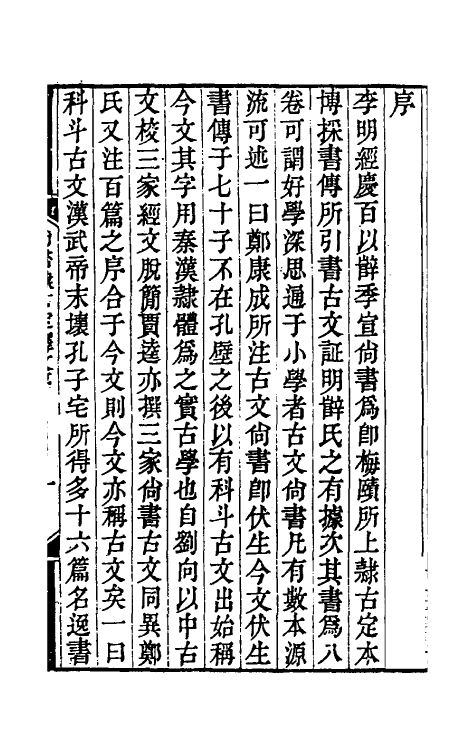 序
李明經慶百以辥季宣尙書爲卽梅賾所上隷古定本
博採書傳所引書古文証明辥氏之有據次其書爲八
卷可謂好學深思通于小學者古文尙書凡有數本源
流可述一曰鄭康成所注古文尙書卽伏生今文伏生
書傳于七十子不在孔壁之後以有科斗古文出始稱
今文其字用秦漢隷體爲之實古學也自劉向以中古
文校三家經文脫簡賈逵亦撰三家尙書古文同異鄭
氏又注百篇之序合于今文則今文亦稱古文矣一曰
科斗古文漢武帝末壞孔子宅所得多十六篇名逸書